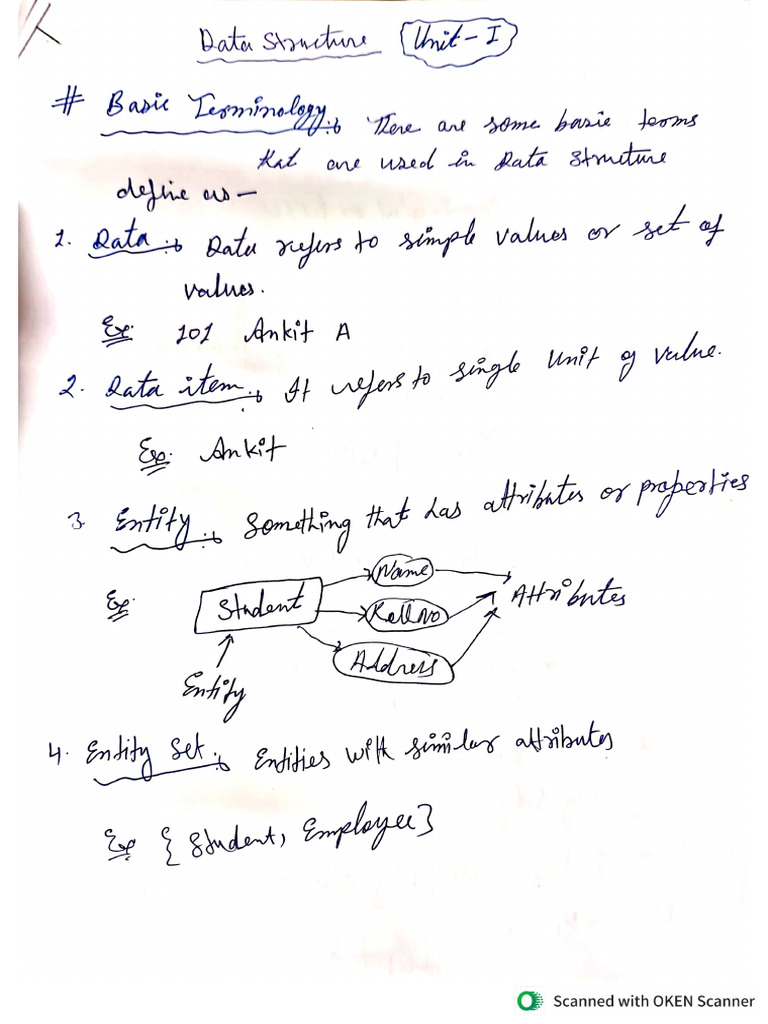 Data Structure Unit - I
# Basic Terminology :- There are some basic terms
that are used in Data Structure
define as -
1. Data :- Data refers to simple values or set of
values.
Ex: 101 Ankit A
2. Data item :- It refers to single Unit of value.
Ex: Ankit
3. Entity :- Something that has attributes or properties
Ex:
Student
Name
RollNo
Address
Attributes
Entity
4. Entity Set :- Entities with similar attributes
Ex {Student, Employee}
Scanned with OKEN Scanner